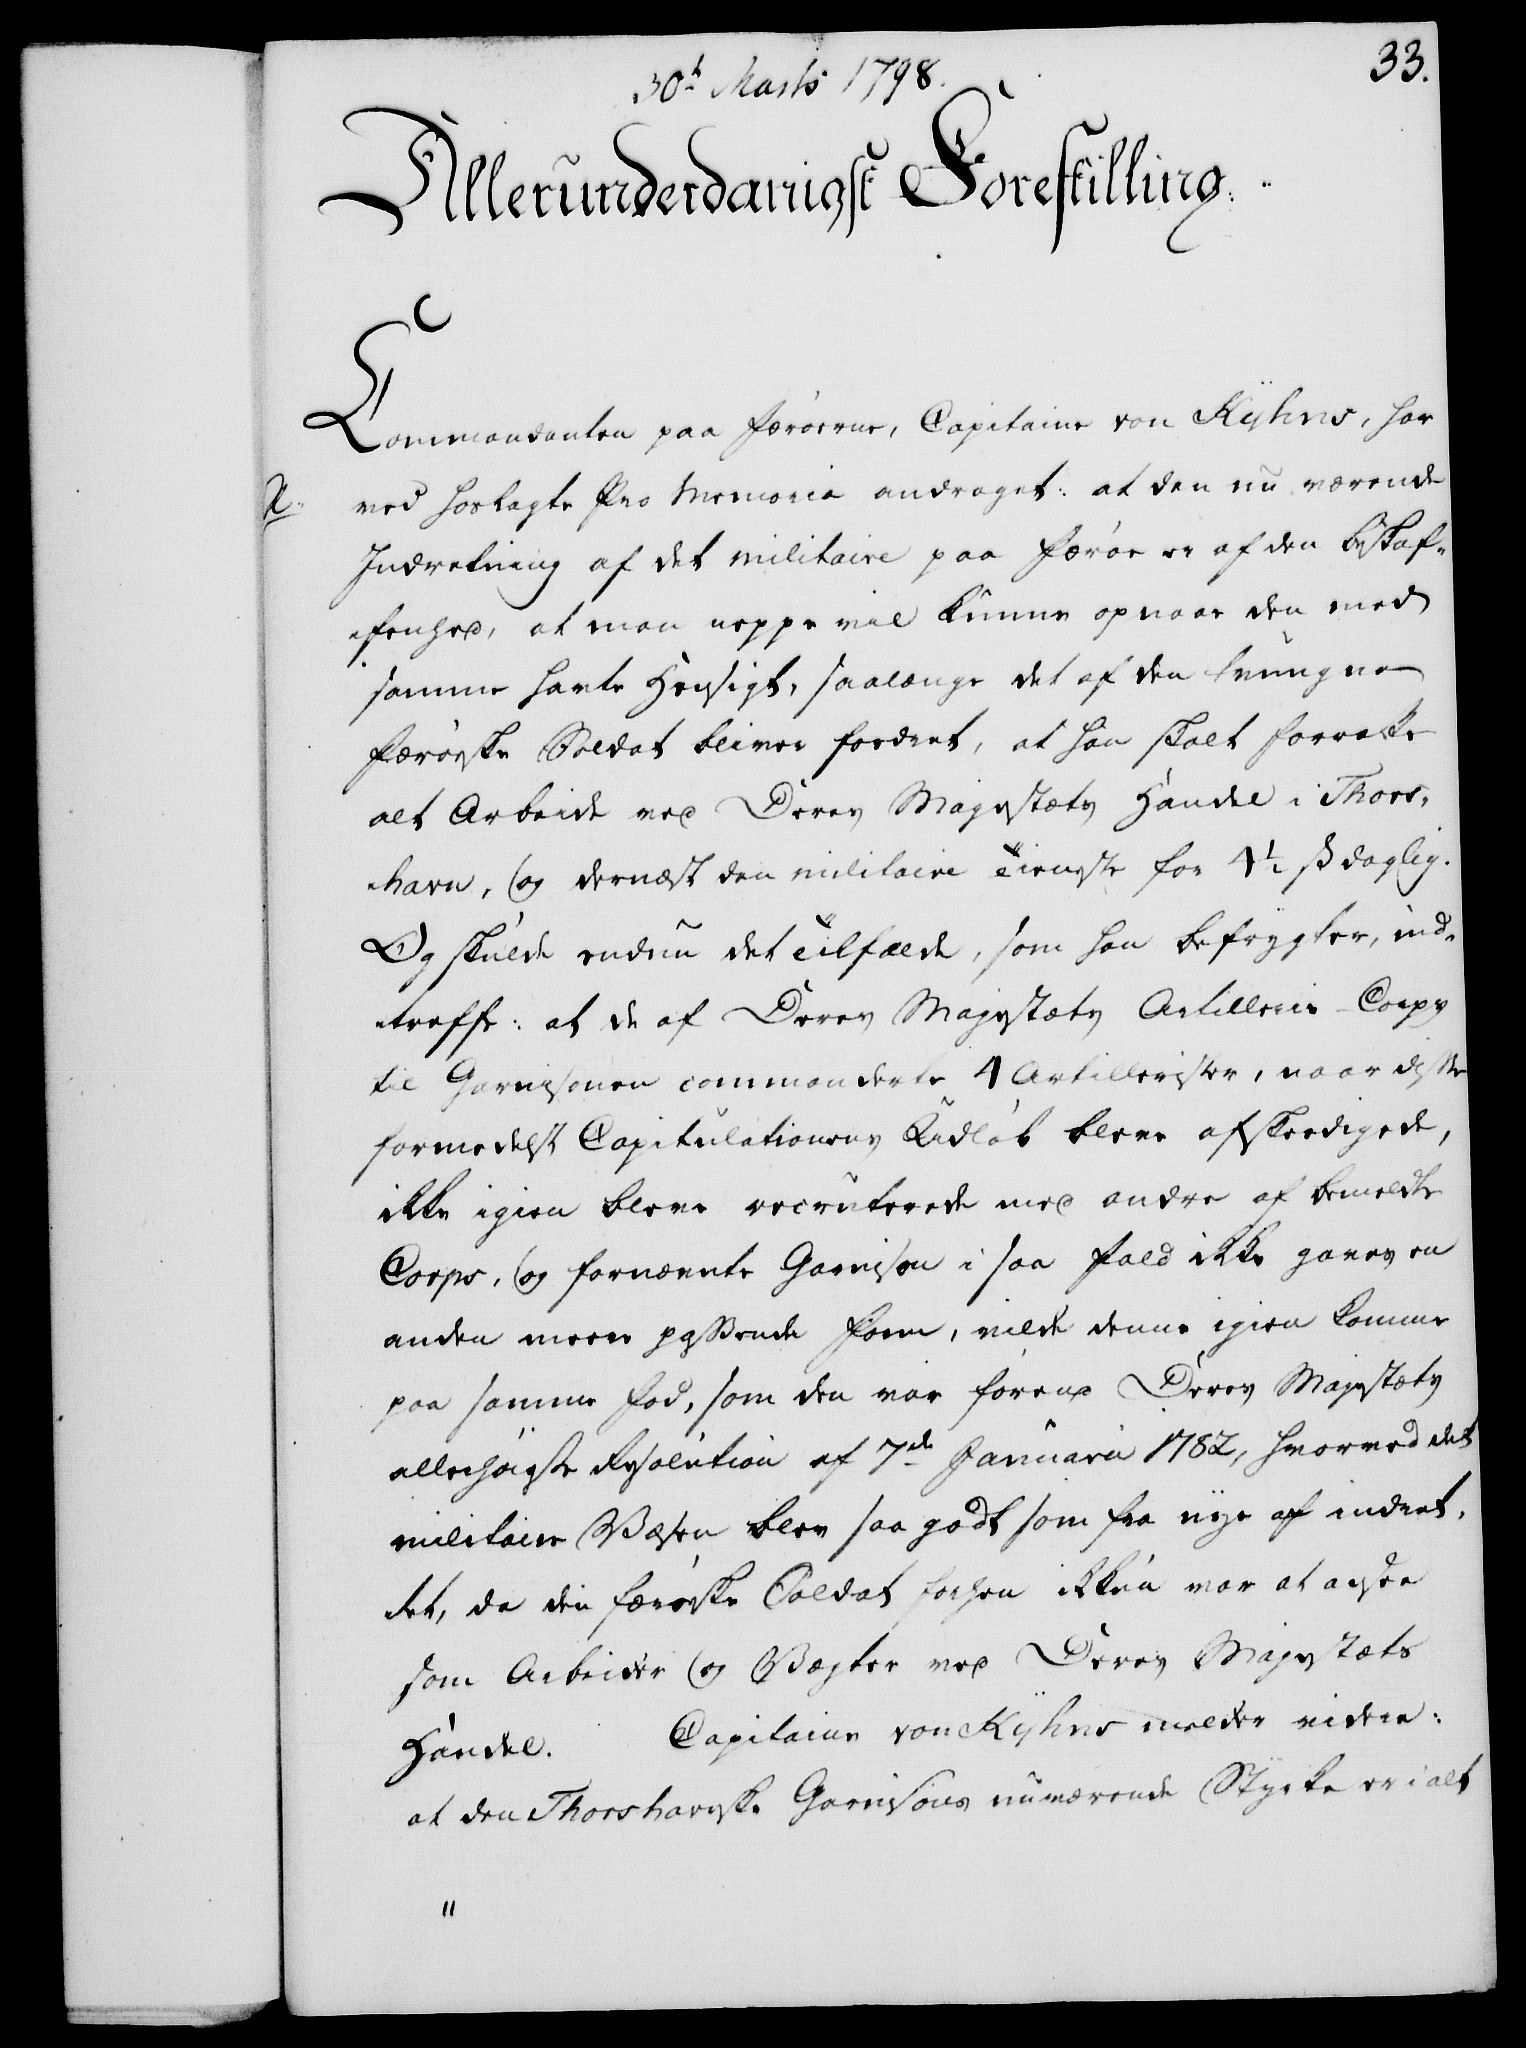 33.
30t Marts 1798.
Allerunderdanigst Forestilling.
Commandanten paa Færøerne, Capitaine von Kyhns, har
A. ved hoslagte Pro Memoria andraget: at den nu værende
Indretning af det militaire paa Færøe er af den Beskaf-
fenhed, at man neppe vil kunne opnaae den med
samme havte Hensigt, saalænge det af den tvungne
færøeske Soldat bliver fordret, at han skal forrette
alt Arbeide ved Deres Majestæts Handel i Thors-
havn, og dernæst den militaire Tieneste for 4½ ß daglig.
Og skulde endnu det Tilfælde, som han befrygter, ind-
treffe: at de af Deres Majestæts Artillerie-Corps
til Garnisonen commanderte 4 Artillerister, naar disse
formedelst Capitulationens Udløb bleve afskeedigede,
ikke igien bleve recruterede med andre af bemeldte
Corps, og fornævnte Garnison i saa Fald ikke gaves en
anden meere passende Form, vilde denne igien komme
paa samme Fod, som den var førend Deres Majestæts
allerhøigste Resolution af 7de Januarii 1782, hvorved det
militaire Væsen blev saa godt som fra nye af indret-
tet, da den færøske Soldat forhen ikkun var at ansee
som Arbeider og Vægter ved Deres Majestæts
Handel. Capitaine von Kyhns melder videre:
at den Thorshavnske Garnisons nuværende Styrke er i alt
"